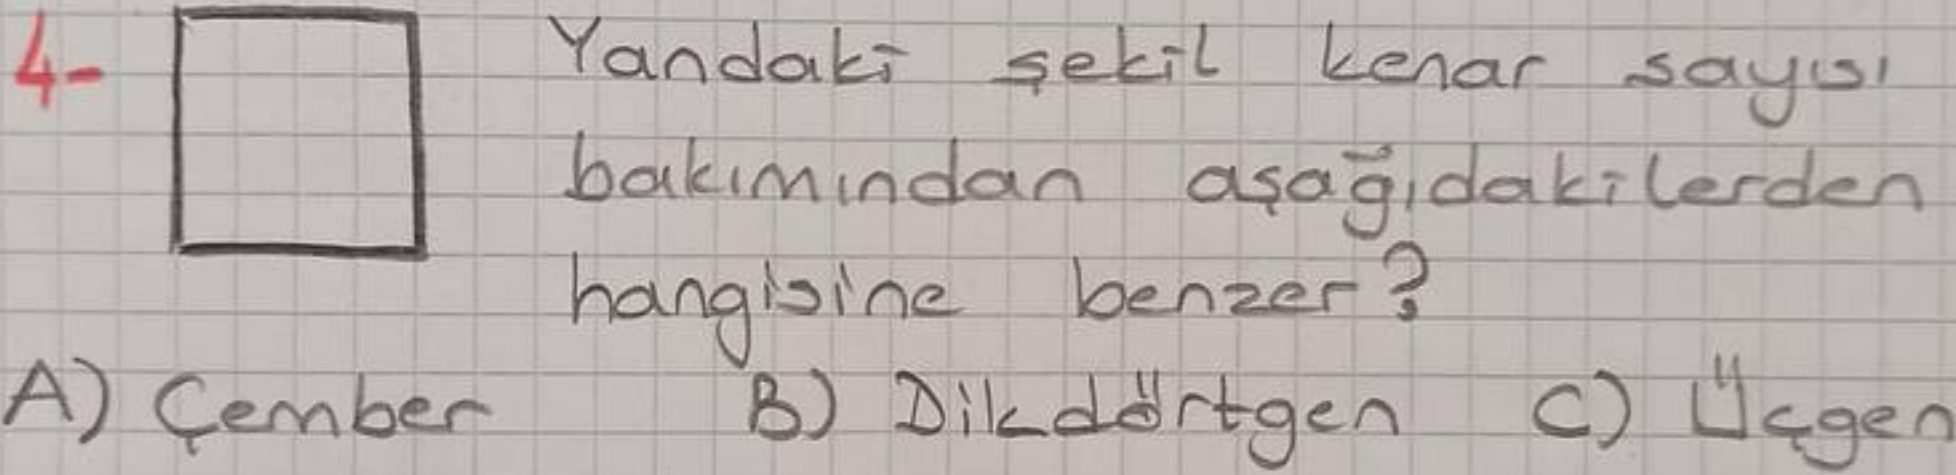 4- Yandaki şekil kenar sayısı
bakımından aşağıdakilerden
hangisine benzer?
A) Çember B) Dikdörtgen C) Üçgen